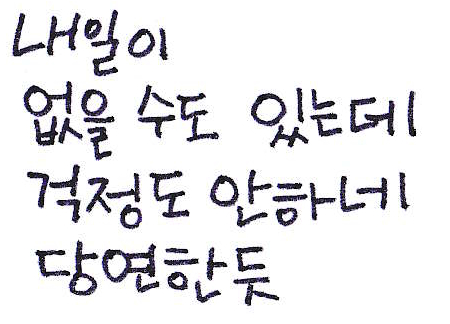 내일이
없을 수도 있는데
걱정도 안하네
당연한듯